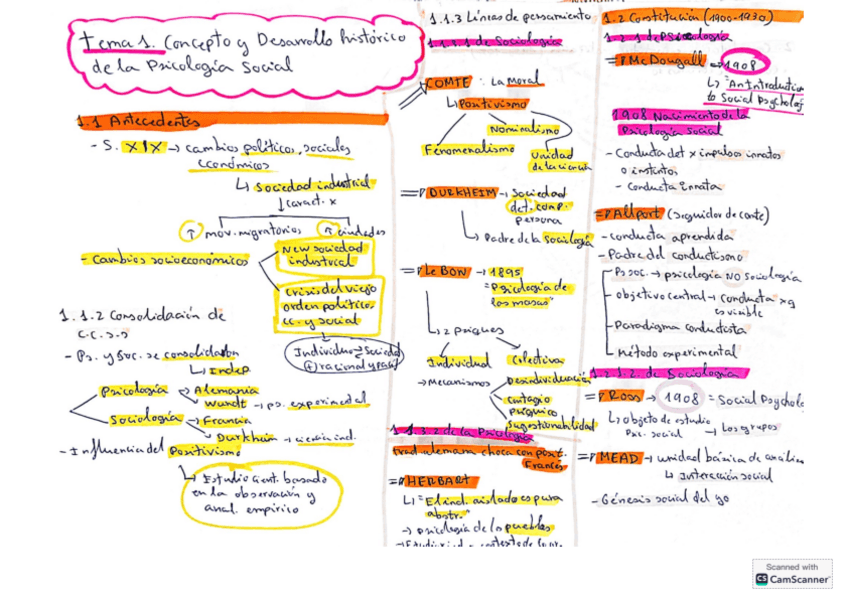 Tema 1. Concepto y Desarrollo histórico
de la Psicología Social
1.1 Antecedentes
- S. XIX → cambios políticos, sociales
económicos
↳ Sociedad industrial
↓ caract. x
↑ mov. migratorios ↑ ciudades
- Cambios socioeconómicos
New sociedad
industrial
Crisis del viejo
orden político,
cc. y social
Individuo → Sociedad
(+) racional y
1.1.2 Consolidación de
c.c.s.s
- Ps. y Soc. se consolidan
↳ Indep.
Psicología → Alemania
Wundt → ps. experimental
Sociología → Francia
Durkheim → ciencia ind.
- Influencia del Positivismo
↳ Estudio cient. basado
en la observación y
anal. empírico
1.1.3 Líneas de pensamiento
1.1.3.1 de Sociología
⇒ COMTE : La moral
↳ Positivismo
Nominalismo
Fenomenalismo
Unidad
de la ciencia
⇒ DURKHEIM → Sociedad
det. comp.
persona
↳ Padre de la sociología
⇒ Le BON → 1895
"Psicología de
las masas"
↳ 2 psiques
Individual Colectiva
→ Mecanismos
Desindividuación
Contagio
psíquico
Sugestionabilidad
1.1.3.2 de la Psicología
Trad alemana choca con posit.
Francés
⇒ HERBART
↳ "El ind. aislado es pura
abstr."
→ psicología de los pueblos
1.2 Constitución (1900-1930)
1.2.1 de Psicología
⇒ McDougall → 1908
↳ "An Introduction
to Social Psycholog
1908 Nacimiento de la
Psicología Social
- Conducta det x impulsos innatos
o instintos
- Conducta innata
⇒ Allport (seguidor de comte)
- conducta aprendida
- Padre del conductismo
- Ps soc. → psicología NO Sociología
- objetivo central → conducta xq
es visible
- Paradigma conductista
- Método experimental
1.2.1.2. de Sociología
⇒ Ross → 1908 = Social Psychol
↳ objeto de estudio
Psic. social → Los grupos
⇒ MEAD → unidad básica de análisis
↳ Interacción social
- Génesis social del yo
Scanned with
CS CamScanner